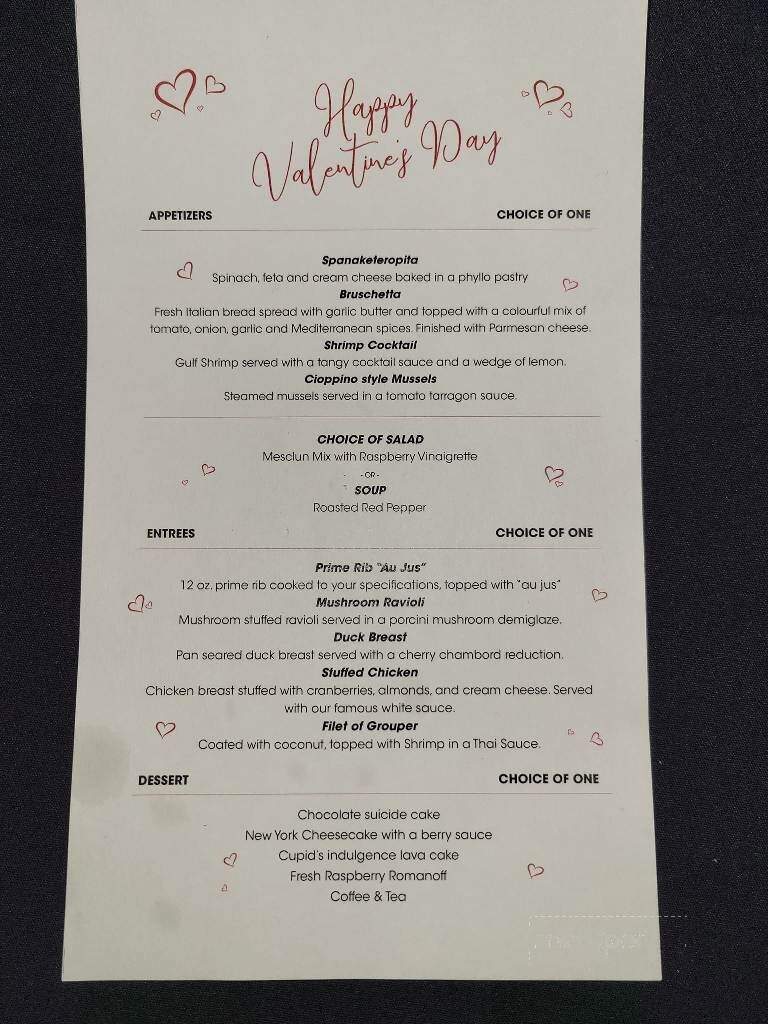 Happy
Valentine's Day
APPETIZERS CHOICE OF ONE
Spanaketeropita
Spinach, feta and cream cheese baked in a phyllo pastry
Bruschetta
Fresh Italian bread spread with garlic butter and topped with a colourful mix of
tomato, onion, garlic and Mediterranean spices. Finished with Parmesan cheese.
Shrimp Cocktail
Gulf Shrimp served with a tangy cocktail sauce and a wedge of lemon.
Cioppino style Mussels
Steamed mussels served in a tomato tarragon sauce.
CHOICE OF SALAD
Mesclun Mix with Raspberry Vinaigrette
-OR-
SOUP
Roasted Red Pepper
ENTREES CHOICE OF ONE
Prime Rib "Au Jus"
12 oz. prime rib cooked to your specifications, topped with "au jus"
Mushroom Ravioli
Mushroom stuffed ravioli served in a porcini mushroom demiglaze.
Duck Breast
Pan seared duck breast served with a cherry chambord reduction.
Stuffed Chicken
Chicken breast stuffed with cranberries, almonds, and cream cheese. Served
with our famous white sauce.
Filet of Grouper
Coated with coconut, topped with Shrimp in a Thai Sauce.
DESSERT CHOICE OF ONE
Chocolate suicide cake
New York Cheesecake with a berry sauce
Cupid's indulgence lava cake
Fresh Raspberry Romanoff
Coffee & Tea